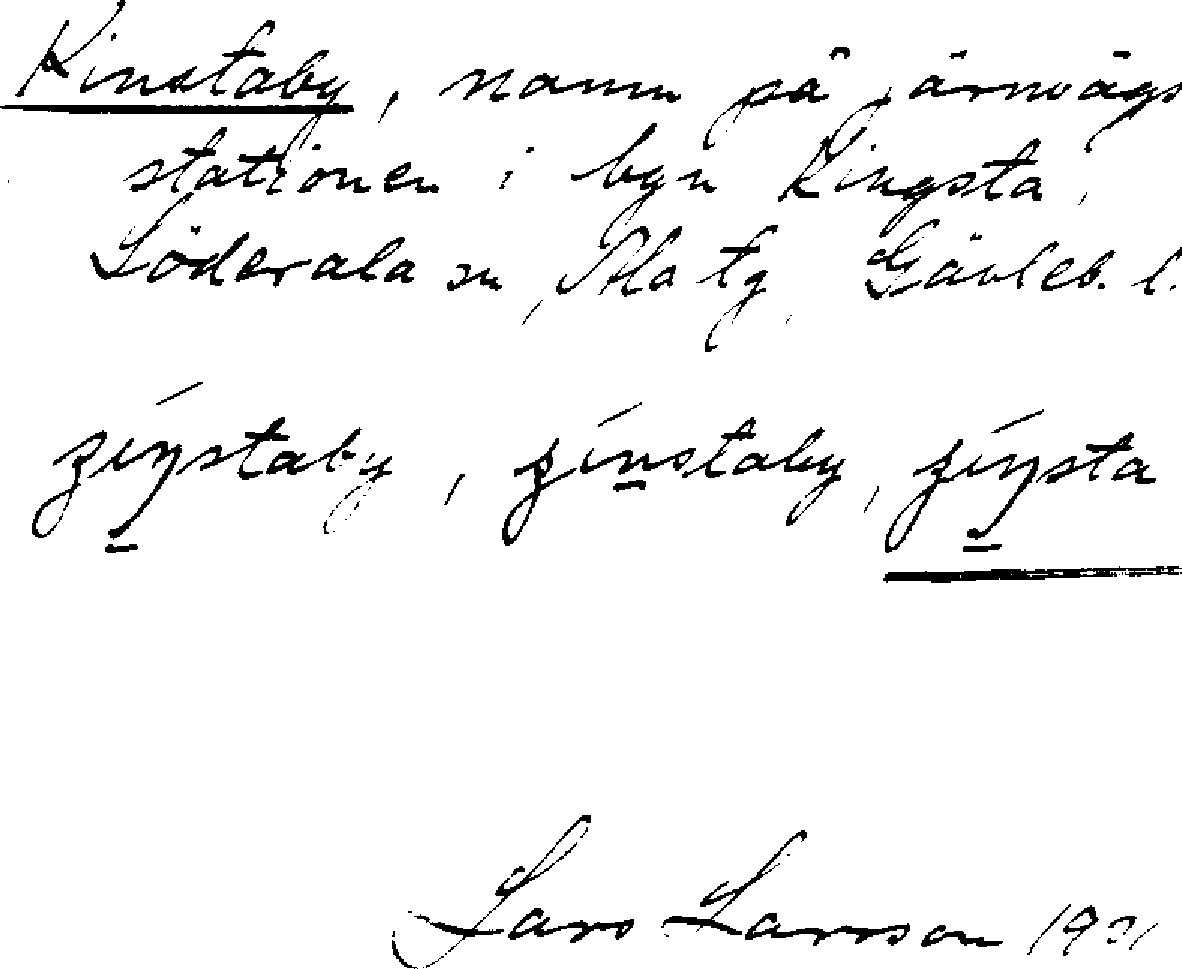 Kinstaby, namn på järnvägs
stationen i byn Kingsta,
Söderala sn, Ala tg, Gävleb. l.
ʒíŋstaby, ʒínstaby, ʒíŋsta
Lars Larsson